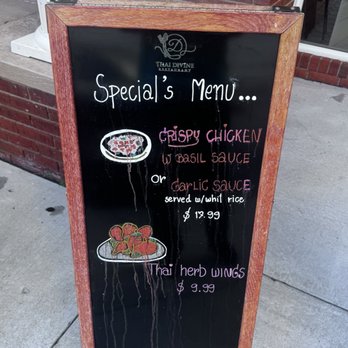 THAI DIVINE
RESTAURANT
Special's Menu...
CRISPY CHICKEN
W BASIL SAUCE
or GARLIC SAUCE
served w/whit rice
$ 17.99
Thai herb WINGS
$ 9.99